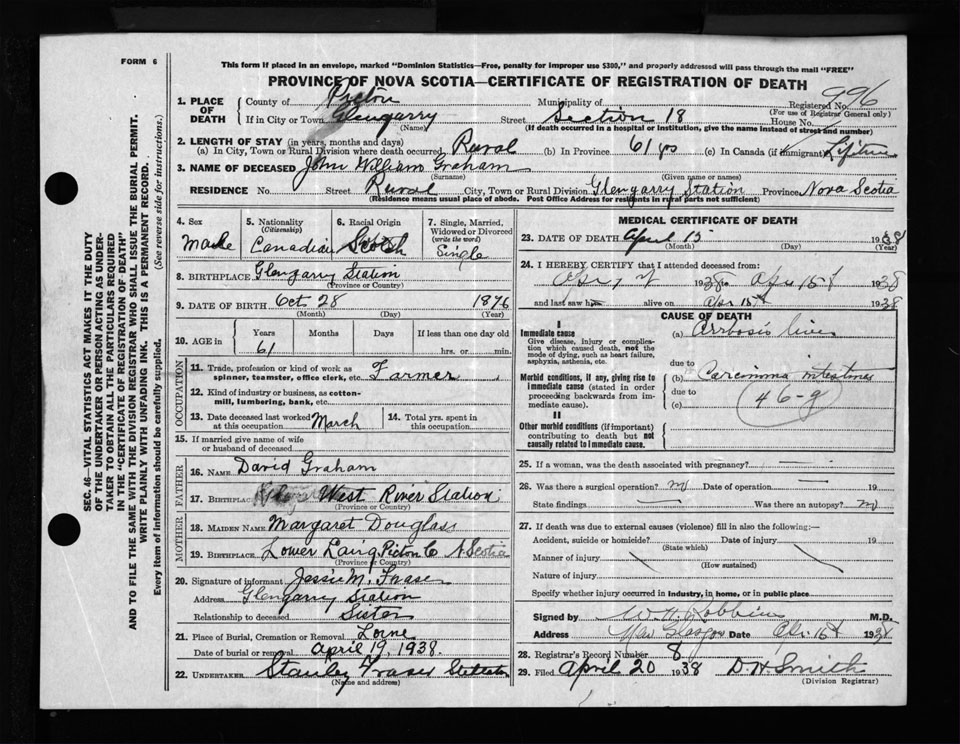 FORM 6
This form if placed in an envelope, marked "Dominion Statistics—Free, penalty for improper use $300," and properly addressed will pass through the mail "FREE"
PROVINCE OF NOVA SCOTIA—CERTIFICATE OF REGISTRATION OF DEATH
SEC. 46—VITAL STATISTICS ACT MAKES IT THE DUTY
OF THE UNDERTAKER OR PERSON ACTING AS UNDER-
TAKER TO OBTAIN ALL THE PARTICULARS REQUIRED
IN THE "CERTIFICATE OF REGISTRATION OF DEATH"
AND TO FILE THE SAME WITH THE DIVISION REGISTRAR WHO SHALL ISSUE THE BURIAL PERMIT.
WRITE PLAINLY WITH UNFADING INK. THIS IS A PERMANENT RECORD.
Every item of information should be carefully supplied. (See reverse side for instructions.)
1. PLACE OF DEATH
County of Pictou Municipality of Registered No. 996
(For use of Registrar General only)
If in City or Town Glengarry Street Section 18 House No.
(Name) (If death occurred in a hospital or institution, give the name instead of street and number)
2. LENGTH OF STAY (in years, months and days)
(a) In City, Town or Rural Division where death occurred Rural (b) In Province 61 yrs (c) In Canada (if immigrant) Lifetime
3. NAME OF DECEASED John William Graham
(Surname) (Given name or names)
RESIDENCE No. Street Rural City, Town or Rural Division Glengarry Station Province Nova Scotia
(Residence means usual place of abode. Post Office Address for residents in rural parts not sufficient)
4. Sex Male
5. Nationality (Citizenship) Canadian
6. Racial Origin Scotch
7. Single, Married, Widowed or Divorced (write the word) Single
8. BIRTHPLACE Glengarry Station
(Province or Country)
9. DATE OF BIRTH Oct 28 1876
(Month) (Day) (Year)
10. AGE in Years Months Days If less than one day old
61 hrs. or min.
OCCUPATION
11. Trade, profession or kind of work as spinner, teamster, office clerk, etc. Farmer
12. Kind of industry or business, as cotton-mill, lumbering, bank, etc.
13. Date deceased last worked at this occupation March
14. Total yrs. spent in this occupation
15. If married give name of wife or husband of deceased
FATHER
16. NAME David Graham
17. BIRTHPLACE West River Station
(Province or Country)
MOTHER
18. MAIDEN NAME Margaret Douglass
19. BIRTHPLACE Lower Pictou C N. Scotia
(Province or Country)
20. Signature of informant Jessie M. Fraser
Address Glengarry Station
Relationship to deceased Sister
21. Place of Burial, Cremation or Removal Lorne
Date of burial or removal April 19, 1938.
22. UNDERTAKER Stanley Fraser Stellarton
(Name and address)
MEDICAL CERTIFICATE OF DEATH
23. DATE OF DEATH April 15 1938
(Month) (Day) (Year)
24. I HEREBY CERTIFY that I attended deceased from:
Apr. 1938 to Apr 15th 1938
and last saw him alive on Apr 15th 1938
CAUSE OF DEATH
I
Immediate cause (a) liver
Give disease, injury or complication which caused death, not the mode of dying, such as heart failure, asphyxia, asthenia, etc.
due to
Morbid conditions, if any, giving rise to immediate cause (stated in order proceeding backwards from immediate cause).
(b) Carcinoma intestines
due to
(c)
46-g
II
Other morbid conditions (if important) contributing to death but not causally related to immediate cause.
25. If a woman, was the death associated with pregnancy?
26. Was there a surgical operation? no Date of operation 19
State findings Was there an autopsy? no
27. If death was due to external causes (violence) fill in also the following:—
Accident, suicide or homicide? Date of injury 19
(State which)
Manner of injury
(How sustained)
Nature of injury
Specify whether injury occurred in industry, in home, or in public place
Signed by W. H. Robbins M.D.
Address New Glasgow Date Apr. 16th 1938
28. Registrar's Record Number 8
29. Filed April 20 1938 D. H. Smith
(Division Registrar)